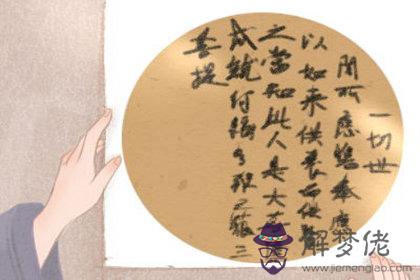 一切世
間所應瞻奉應
以如来供養而供養
之當知此人是大菩
成就阿耨多羅三藐三
菩提
解梦佬
www.jiemenglao.com